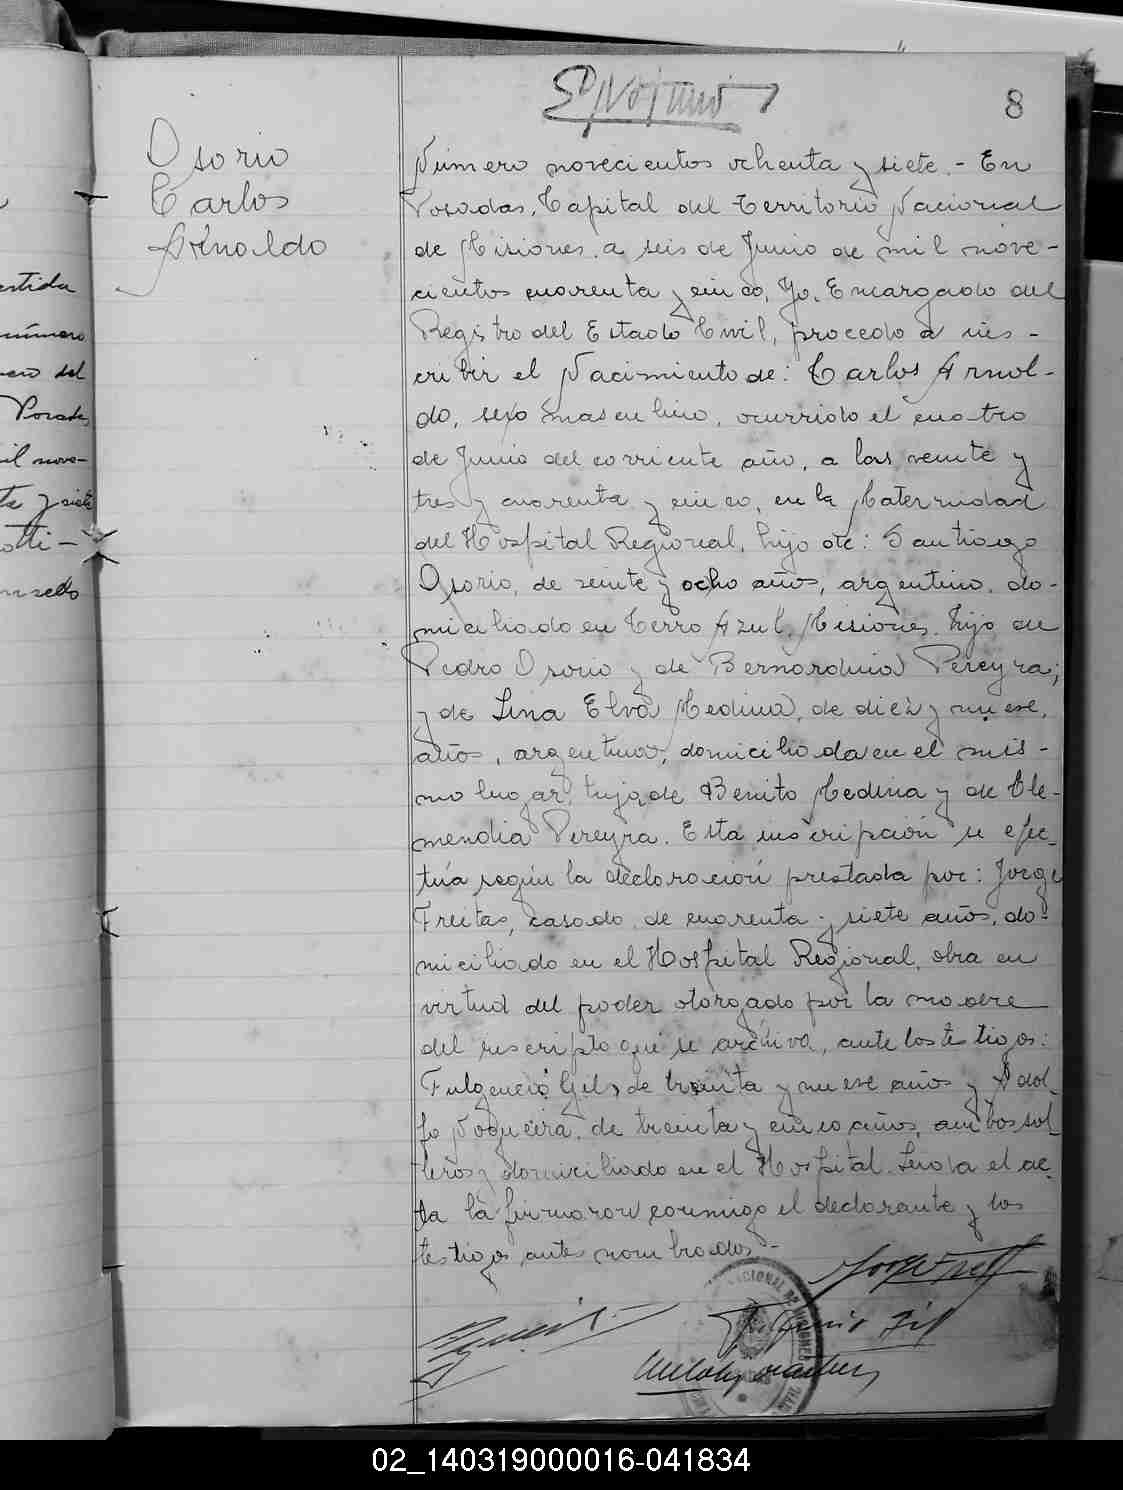 8
Osorio
Carlos
Arnoldo
Número novecientos ochenta y siete.- En
Posadas, Capital del Territorio Nacional
de Misiones, a seis de Junio de mil nove-
cientos cuarenta y cinco, Yo, Encargado del
Registro del Estado Civil, procedo a ins-
cribir el Nacimiento de: Carlos Arnol-
do, sexo masculino, ocurrido el cuatro
de Junio del corriente año, a las veinte y
tres y cuarenta y cinco, en la Maternidad
del Hospital Regional, hijo de: Santiago
Osorio, de veinte y ocho años, argentino, do-
miciliado en Cerro Azul, Misiones, hijo de
Pedro Osorio y de Bernardina Pereyra;
y de Lina Elva Medina, de diez y nueve,
años, argentina, domiciliada en el mis-
mo lugar, hija de Benito Medina y de Cle-
mendia Pereyra. Esta inscripción se efec-
túa según la declaración prestada por: Jorge
Freitas, casado, de cuarenta y siete años, do-
miciliado en el Hospital Regional, obra en
virtud del poder otorgado por la madre
del inscripto que se archiva, ante los testigos:
Fulgencio Gil, de treinta y nueve años y Adol-
fo Nogueira, de treinta y cinco años, ambos sol-
teros y domiciliado en el Hospital. Leida el ac-
ta la firmaron conmigo el declarante y los
testigos antes nombrados.-
NACIONAL DE MISIONES
estida
número
del
Posadas
mil nove-
ta y siete
otti-
02_140319000016-041834